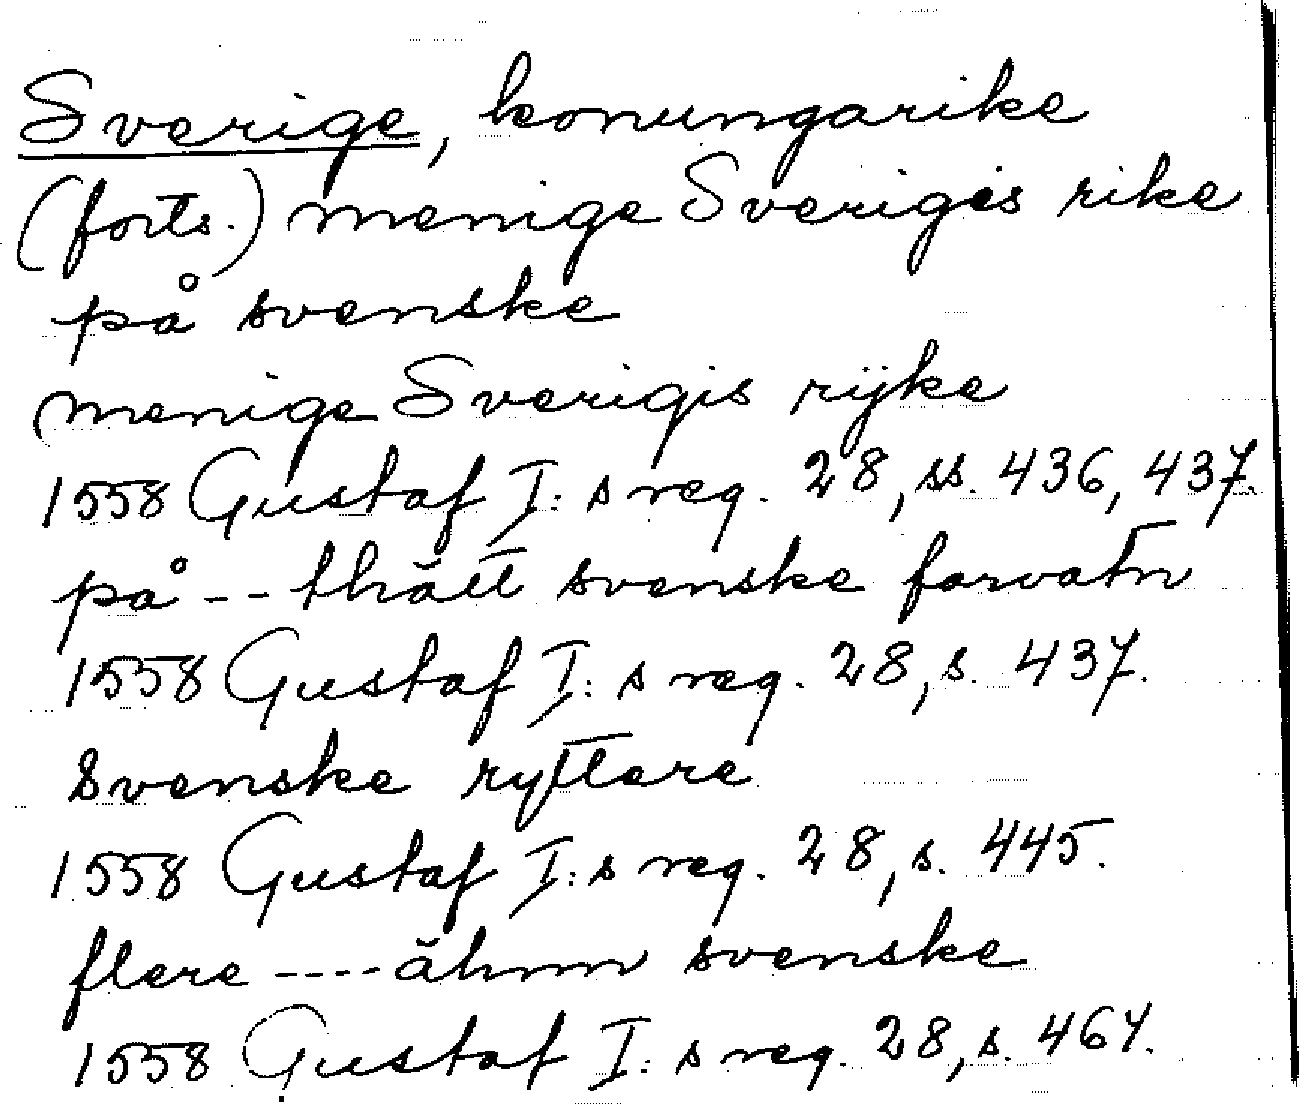 Sverige, konungarike
(forts.) menige Sveriges rike
på svenske
menige Sverigis rijke
1558 Gustaf I:s reg. 28, ss. 436, 437.
på -- thätt svenske farvatn
1558 Gustaf I:s reg. 28, s. 437.
Svenske ryttere
1558 Gustaf I:s reg. 28, s. 445.
flere ---- ähnn svenske
1558 Gustaf I:s reg. 28, s. 467.